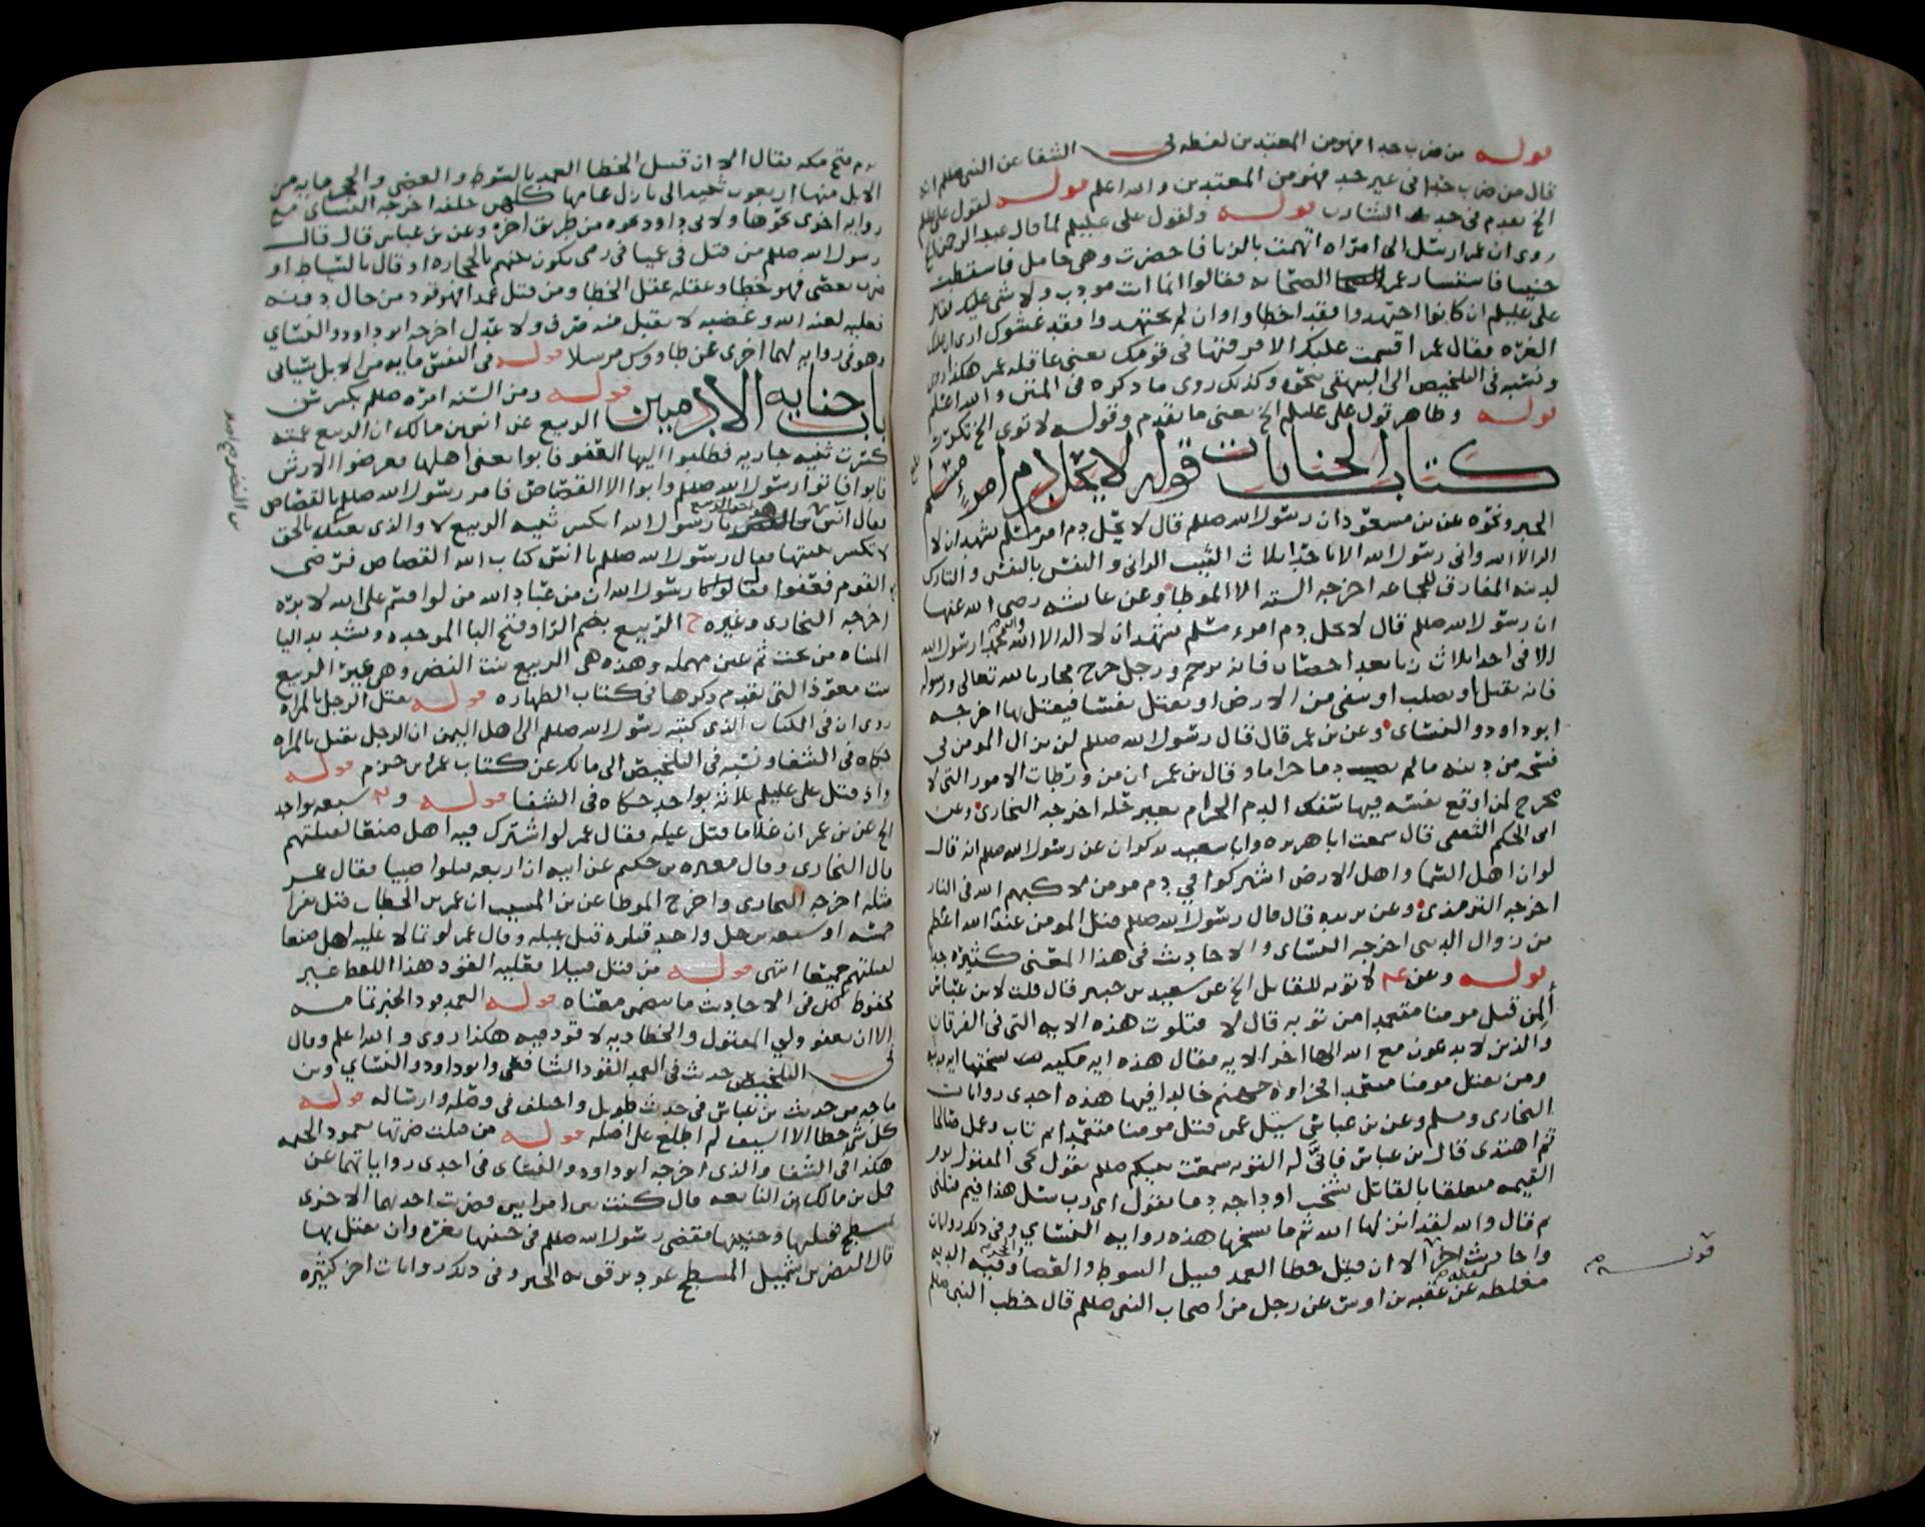 قوله من ضرب حدا فهو من المعتدين لفظه في الشفا عن النبي صللم انه
قال من ضرب حدا في غير حد فهو من المعتدين والله اعلم قوله لقول علي عليلم
الخ تقدم في حد الشارب قوله ولقول علي عليلم لما قال عبد الرحمن الخ
روى ان عمر ارسل الى امراه اتهمت بالزنا فاحضرت وهي حامل فاسقطت
جنينا فاستشار عمر الصحابه فقالوا انما انت مودب ولا شي عليك فقال
علي عليلم ان كانوا اجتهدوا فقد اخطاوا وان لم يجتهدوا فقد غشوك ارى ان عليك
الغره فقال عمر اقسمت عليك الا فرقتها في قومك يعني عاقله عمر هكذا روي
ونسبه في التلخيص الى البيهقي بنحوه وكذلك روى ما ذكره في المنتقى والله اعلم
قوله وظاهر قول علي عليلم الخ يعني ما تقدم وقوله لا توى الخ تكررت
كتاب الجنايات قوله لا يحل دم امرء مسلم
الخبر ونحوه عن بن مسعود ان رسول الله صللم قال لا يحل دم امرء مسلم يشهد ان لا
اله الا الله واني رسول الله الا باحدى ثلاث الثيب الزاني والنفس بالنفس والتارك
لدينه المفارق للجماعه اخرجه السته الا الموطا وعن عائشه رضي الله عنها
ان رسول الله صللم قال لا يحل دم امرء مسلم يشهد ان لا اله الا الله وان محمدا رسول الله
الا في احدى ثلاث زنا بعد احصان فانه يرجم ورجل خرج محاربا لله تعالى ورسوله
فانه يقتل او يصلب او ينفى من الارض او يقتل نفسا فيقتل بها اخرجه
ابو داود والنسائي وعن بن عمر قال قال رسول الله صللم لن يزال المومن في
فسحه من دينه ما لم يصب دما حراما وقال بن عمر ان من ورطات الامور التي لا
مخرج لمن اوقع نفسه فيها سفك الدم الحرام بغير حله اخرجه البخاري وعن
ابي الحكم قال سمعت ابا هريره وابا سعيد يذكران عن رسول الله صللم انه قال
لو ان اهل السما واهل الارض اشتركوا في دم مومن لاكبهم الله في النار
اخرجه الترمذي وعن بريده قال قال رسول الله صللم قتل المومن عند الله اعظم
من زوال الدنيا اخرجه النسائي والاحاديث في هذا المعنى كثيره جدا
قوله وعن لا توبه للقاتل الخ عن سعيد بن جبير قال قلت لابن عباس
ألمن قتل مومنا متعمدا من توبه قال لا فتلوت هذه الايه التي في الفرقان
والذين لا يدعون مع الله الها اخر الايه فقال هذه ايه مكيه نسختها ايه مدنيه
ومن يقتل مومنا متعمدا فجزاوه جهنم خالدا فيها هذه احدى روايات
البخاري ومسلم وعن بن عباس سيل عمن قتل مومنا متعمدا ثم تاب وعمل صالحا
ثم اهتدى قال بن عباس فانى له التوبه سمعت نبيكم صللم يقول يجي المقتول يوم
القيمه متعلقا بالقاتل تشخب اوداجه دما يقول اي رب سل هذا فيم قتلني
ثم قال والله لقد انزلها الله ثم ما نسخها هذه روايه النسائي وفي ذلك روايات
واحاديث اخر الا ان قتيل خطا العمد قتيل السوط والعصا وفيه الديه
مغلظه عن عقبه بن اوس عن رجل من اصحاب النبي صللم قال خطب النبي صللم
قوله
يوم فتح مكه فقال الا ان قتيل الخطا العمد بالسوط والعصى والحجر مايه من
الابل منها اربعون ثنيه الى بازل عامها كلهن خلفه اخرجه النسائي مع
روايه اخرى نحوها ولابي داود نحوه من طريق اخره وعن بن عباس قال قال
رسول الله صللم من قتل في عميا في رمى يكون بينهم بالحجاره او قال بالسياط او
ضرب بعصى فهو خطا وعقله عقل الخطا ومن قتل عمدا فهو قود من حال دونه
فعليه لعنه الله وغضبه لا يقبل منه صرف ولا عدل اخرجه ابو داود والنسائي
وهو في روايه لهما اخرى عن طاووس مرسلا قوله في النفس مايه من الابل سياتي
باب جنايه الادميين قوله ومن السنه امره صللم بكسر سن
الربيع عن انس بن مالك ان الربيع عمته
كسرت ثنيه جاريه فطلبوا اليها العفو فابوا يعني اهلها فعرضوا الارش
فابوا فاتوا رسول الله صللم وابوا الا القصاص فامر رسول الله صللم بالقصاص
فقال انس بن النضر يا رسول الله اتكسر ثنيه الربيع لا والذي بعثك بالحق
لا تكسر ثنيتها فقال رسول الله صللم يا انس كتاب الله القصاص فرضي
القوم فعفوا فقال رسول الله ان من عباد الله من لو اقسم على الله لابره
اخرجه البخاري وغيره ح الربيع بضم الرا وفتح البا الموحده وتشديد اليا
المثناه من تحت ثم عين مهمله وهذه هي الربيع بنت النضر وهي غير الربيع
بنت معوذ التي تقدم ذكرها في كتاب الطهاره قوله يقتل الرجل بالمراه
روى ان في الكتاب الذي كتبه رسول الله صللم الى اهل اليمن ان الرجل يقتل بالمراه
حكاه في الشفا ونسبه في التلخيص الى مالك عن كتاب عمرو بن حزم قوله
واذ قتل علي عليلم ثلاثه بواحد حكاه في الشفا قوله و سبعه بواحد
الخ عن بن عمر ان غلاما قتل غيله فقال عمر لو اشترك فيه اهل صنعا لقتلتهم
قال البخاري وقال مغيره بن حكيم عن ابيه ان اربعه قتلوا صبيا فقال عمر
مثله اخرجه البخاري واخرج الموطا عن بن المسيب ان عمر بن الخطاب قتل نفرا
خمسه او سبعه برجل واحد قتلوه قتل غيله وقال عمر لو تمالا عليه اهل صنعا
لقتلتهم جميعا انتهى قوله من قتل قتيلا فعليه القود هذا اللفظ غير
محفوظ لكن في الاحاديث ما يتضمن معناه قوله العمد قود الخبر تمامه
الا ان يعفو ولي المقتول والخطا ديه لا قود فيه هكذا روى والله اعلم وقال
في التلخيص حديث في العمد القود الشافعي وابو داود والنسائي وبن
ماجه من حديث بن عباس في حديث طويل واختلف في وصله وارساله قوله
كل شي خطا الا السيف لم اطلع على اصله قوله من قتلت ضرتها بعمود الخيمه
هكذا في الشفا والذي اخرجه ابو داود والنسائي في احدى رواياتهما عن
حمل بن مالك بن النابغه قال كنت بين امراتين فضربت احداهما الاخرى
بمسطح فقتلتها وجنينها فقضى رسول الله صللم في جنينها بغره وان تقتل بها
قال النضر بن شميل المسطح عود يرقق به الخبز وفي ذلك روايات اخر كثيره